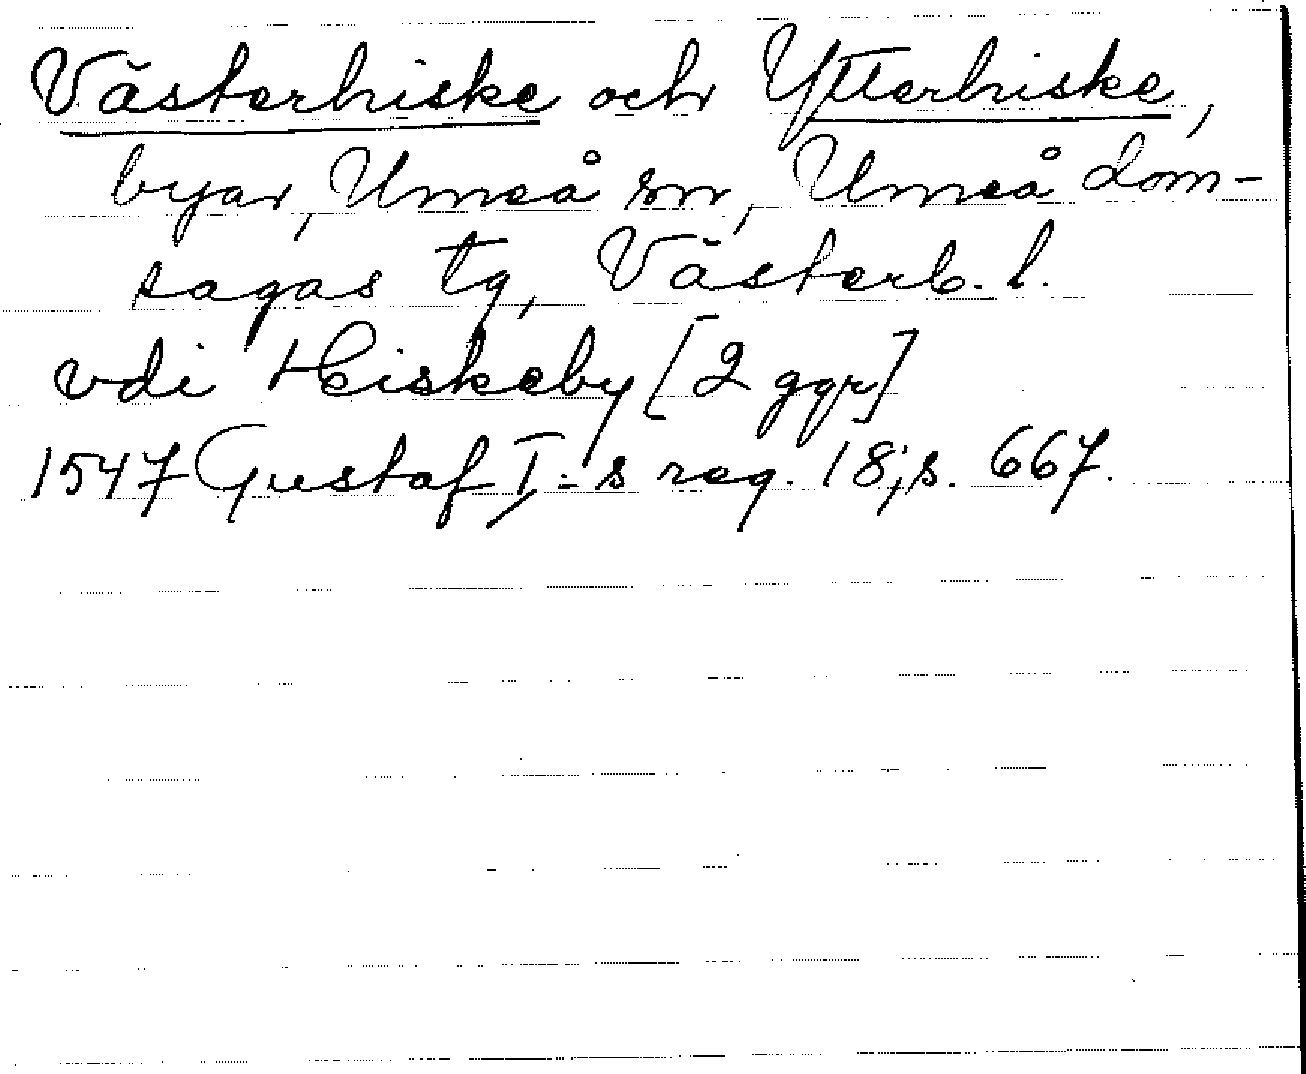 Västerhiske och Ytterhiske,
byar, Umeå sn, Umeå dom-
sagas tg, Västerb. l.
vdi Hiskeby [2 ggr]
1547 Gustaf I:s reg. 18; s. 667.